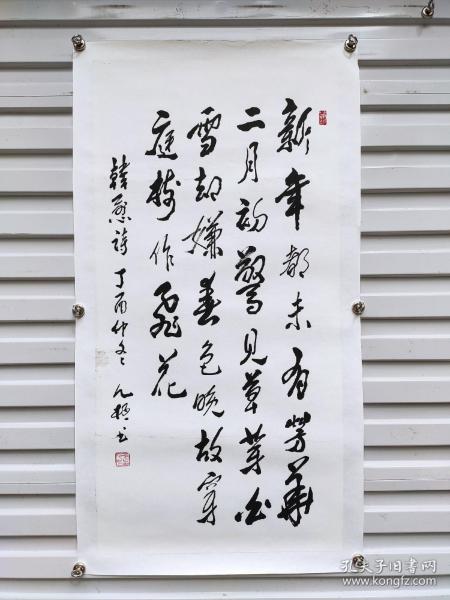 新年都未有芳華
二月初驚見草芽白
雪却嫌春色晚故穿
庭樹作飛花
韓愈詩 丁酉仲冬 书
孔夫子旧书网
www.kongfz.com